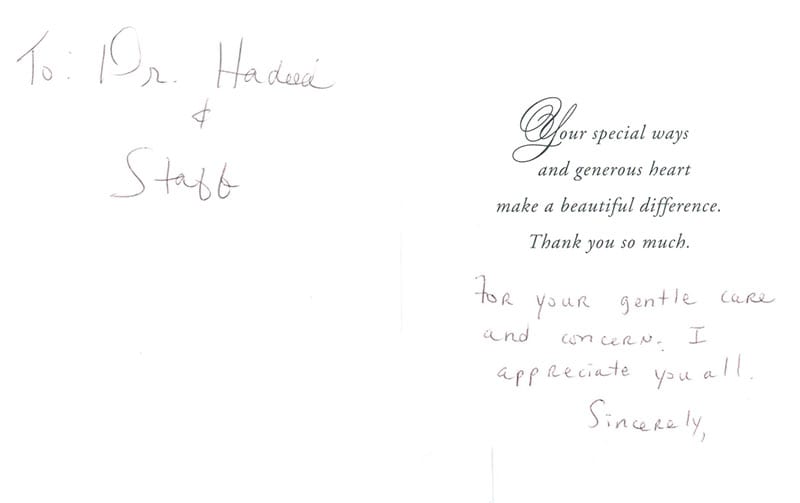 To: Dr.
&
Staff
Your special ways
and generous heart
make a beautiful difference.
Thank you so much.
For your gentle care
and concern. I
appreciate you all.
Sincerely,